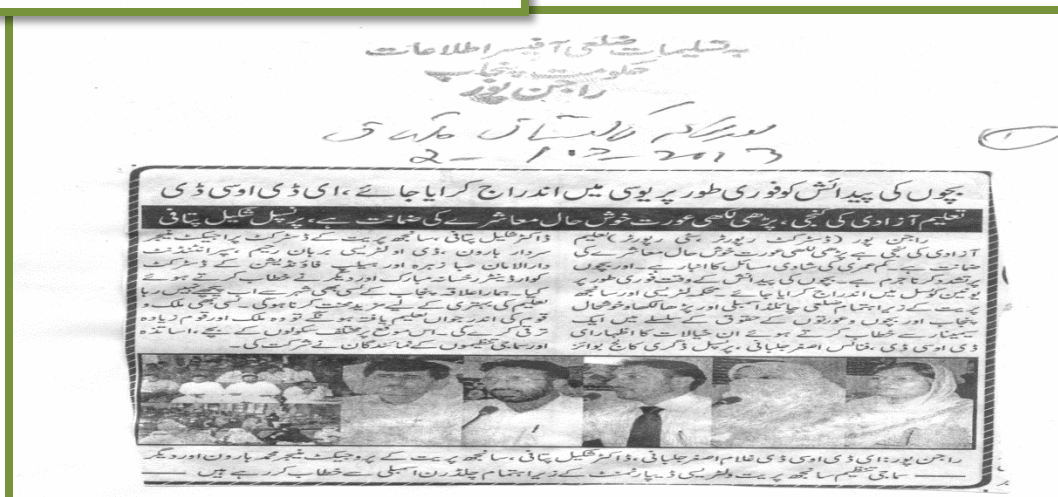 بہ تسلیمات ضلعی آفیسر اطلاعات
حکومت پنجاب
راجن پور
پاکستان
2-    -2013
1
بچوں کی پیدائش کو فوری طور پر یوسی میں اندراج کرایا جائے، ای ڈی او سی ڈی
تعلیم آزادی کی کنجی، پڑھی لکھی عورت خوش حال معاشرے کی ضمانت ہے، پرنسپل شکیل پتافی
راجن پور (ڈسٹرکٹ رپورٹر، سٹی رپورٹر) تعلیم
آزادی کی کنجی ہے پڑھی لکھی عورت خوش حال معاشرے کی
ضمانت ہے۔ کم عمری کی شادی مسائل کا انبار ہے۔ اور بچوں
پر تشدد کرنا جرم ہے۔ بچوں کی پیدائش کے وقت فوری طور پر
یونین کونسل میں اندراج کرایا جائے۔ محکمہ لٹریسی اور سانجھ
پریت کے زیر اہتمام ضلعی چائلڈ اسمبلی اور پڑھا لکھا خوشحال
پنجاب اور بچوں و عورتوں کے حقوق کے سلسلے میں ایک
سیمینار سے خطاب کرتے ہوئے ان خیالات کا اظہار ای
ڈی او سی ڈی، فنانس اصغر جلبانی، پرنسپل ڈگری کالج بوائز
ڈاکٹر شکیل پتافی، سانجھ پریت کے ڈسٹرکٹ پراجیکٹ منیجر
سردار ہارون، ڈی او لٹریسی برہان رحیم، سپرنٹنڈنٹ
دارالامان صبا زہرہ اور ہیلپ فاؤنڈیشن کے ڈسٹرکٹ
کوارڈینیٹر رخسانہ مبارک اور دیگر نے خطاب کرتے ہوئے
کہا۔ ہمارا علاقہ پنجاب کے کسی بھی شہر سے اب پیچھے نہیں رہا
تعلیم کی بہتری کے لیے مزید محنت کرنا ہوگی۔ کسی بھی ملک و
قوم کی اندر جواں تعلیم یافتہ ہو گے تو وہ ملک اور قوم زیادہ
ترقی کرے گی۔ اس موقع پر مختلف سکولوں کے بچے، اساتذہ
اور سماجی تنظیموں کے نمائندگان نے شرکت کی۔
راجن پور: ای ڈی او سی ڈی غلام اصغر جلبانی، ڈاکٹر شکیل پتافی، سانجھ پریت کے پروجیکٹ منیجر محمد ہارون اور دیگر
سماجی تنظیم سانجھ پریت و لٹریسی ڈیپارٹمنٹ کے زیر اہتمام چلڈرن اسمبلی سے خطاب کر رہے ہیں